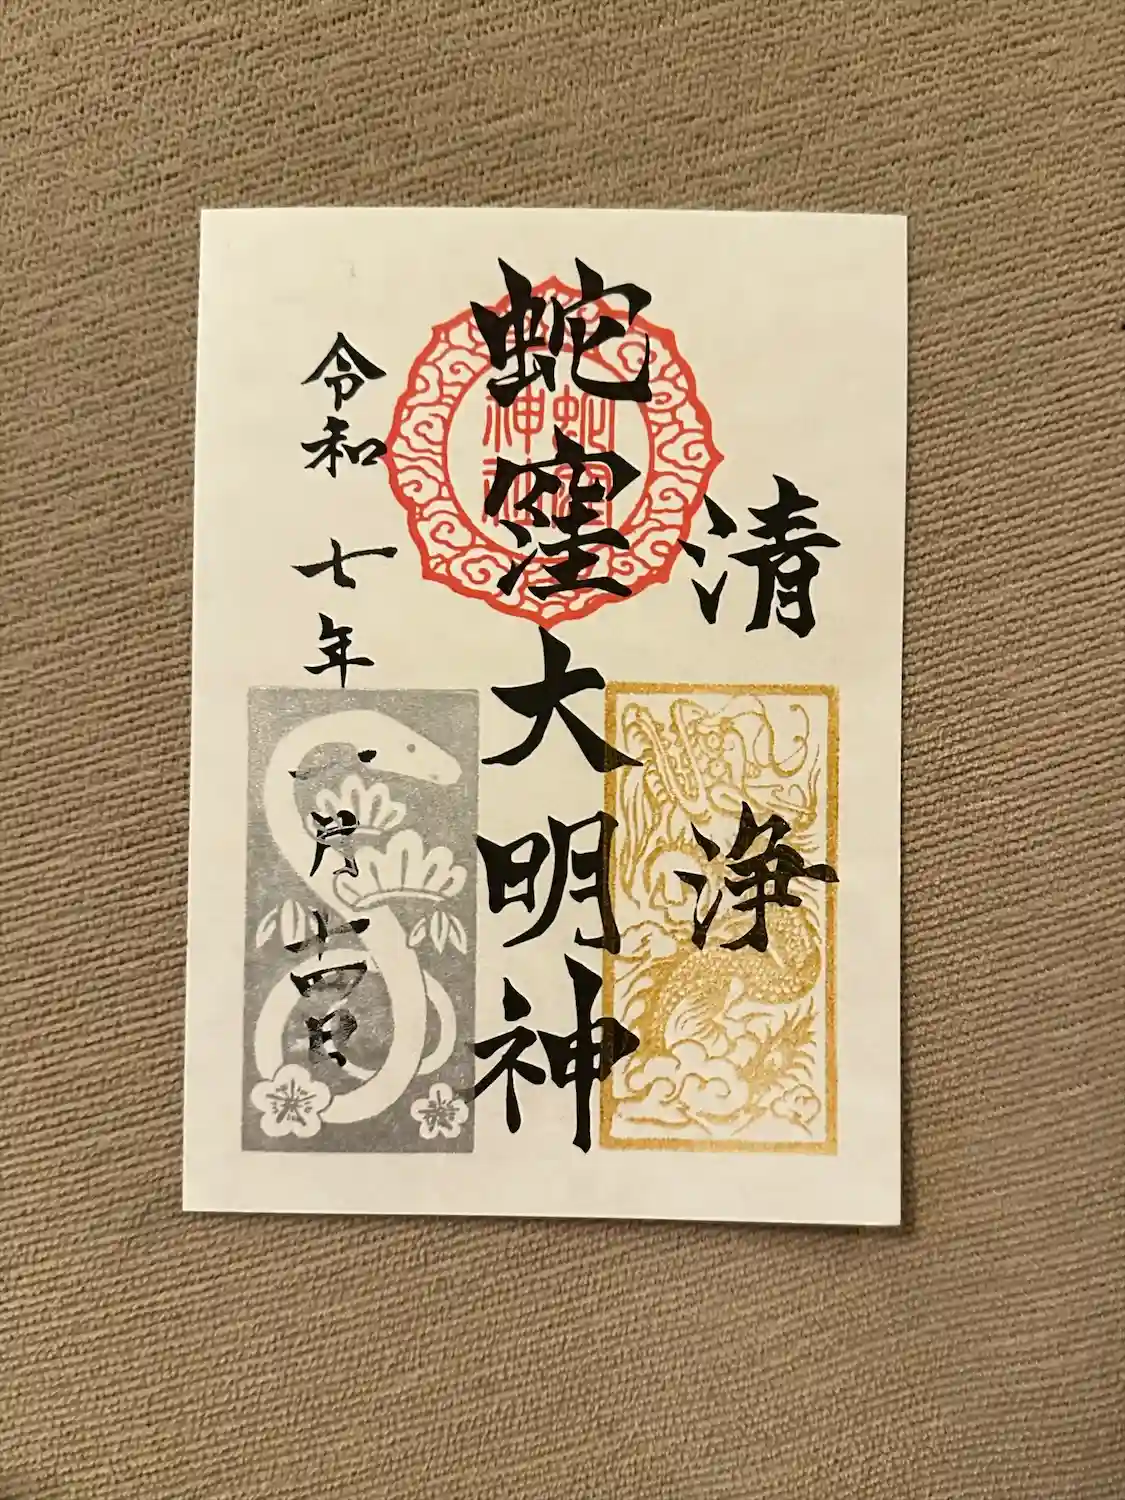 清浄
蛇窪大明神
蛇窪
神社
令和七年一月十四日